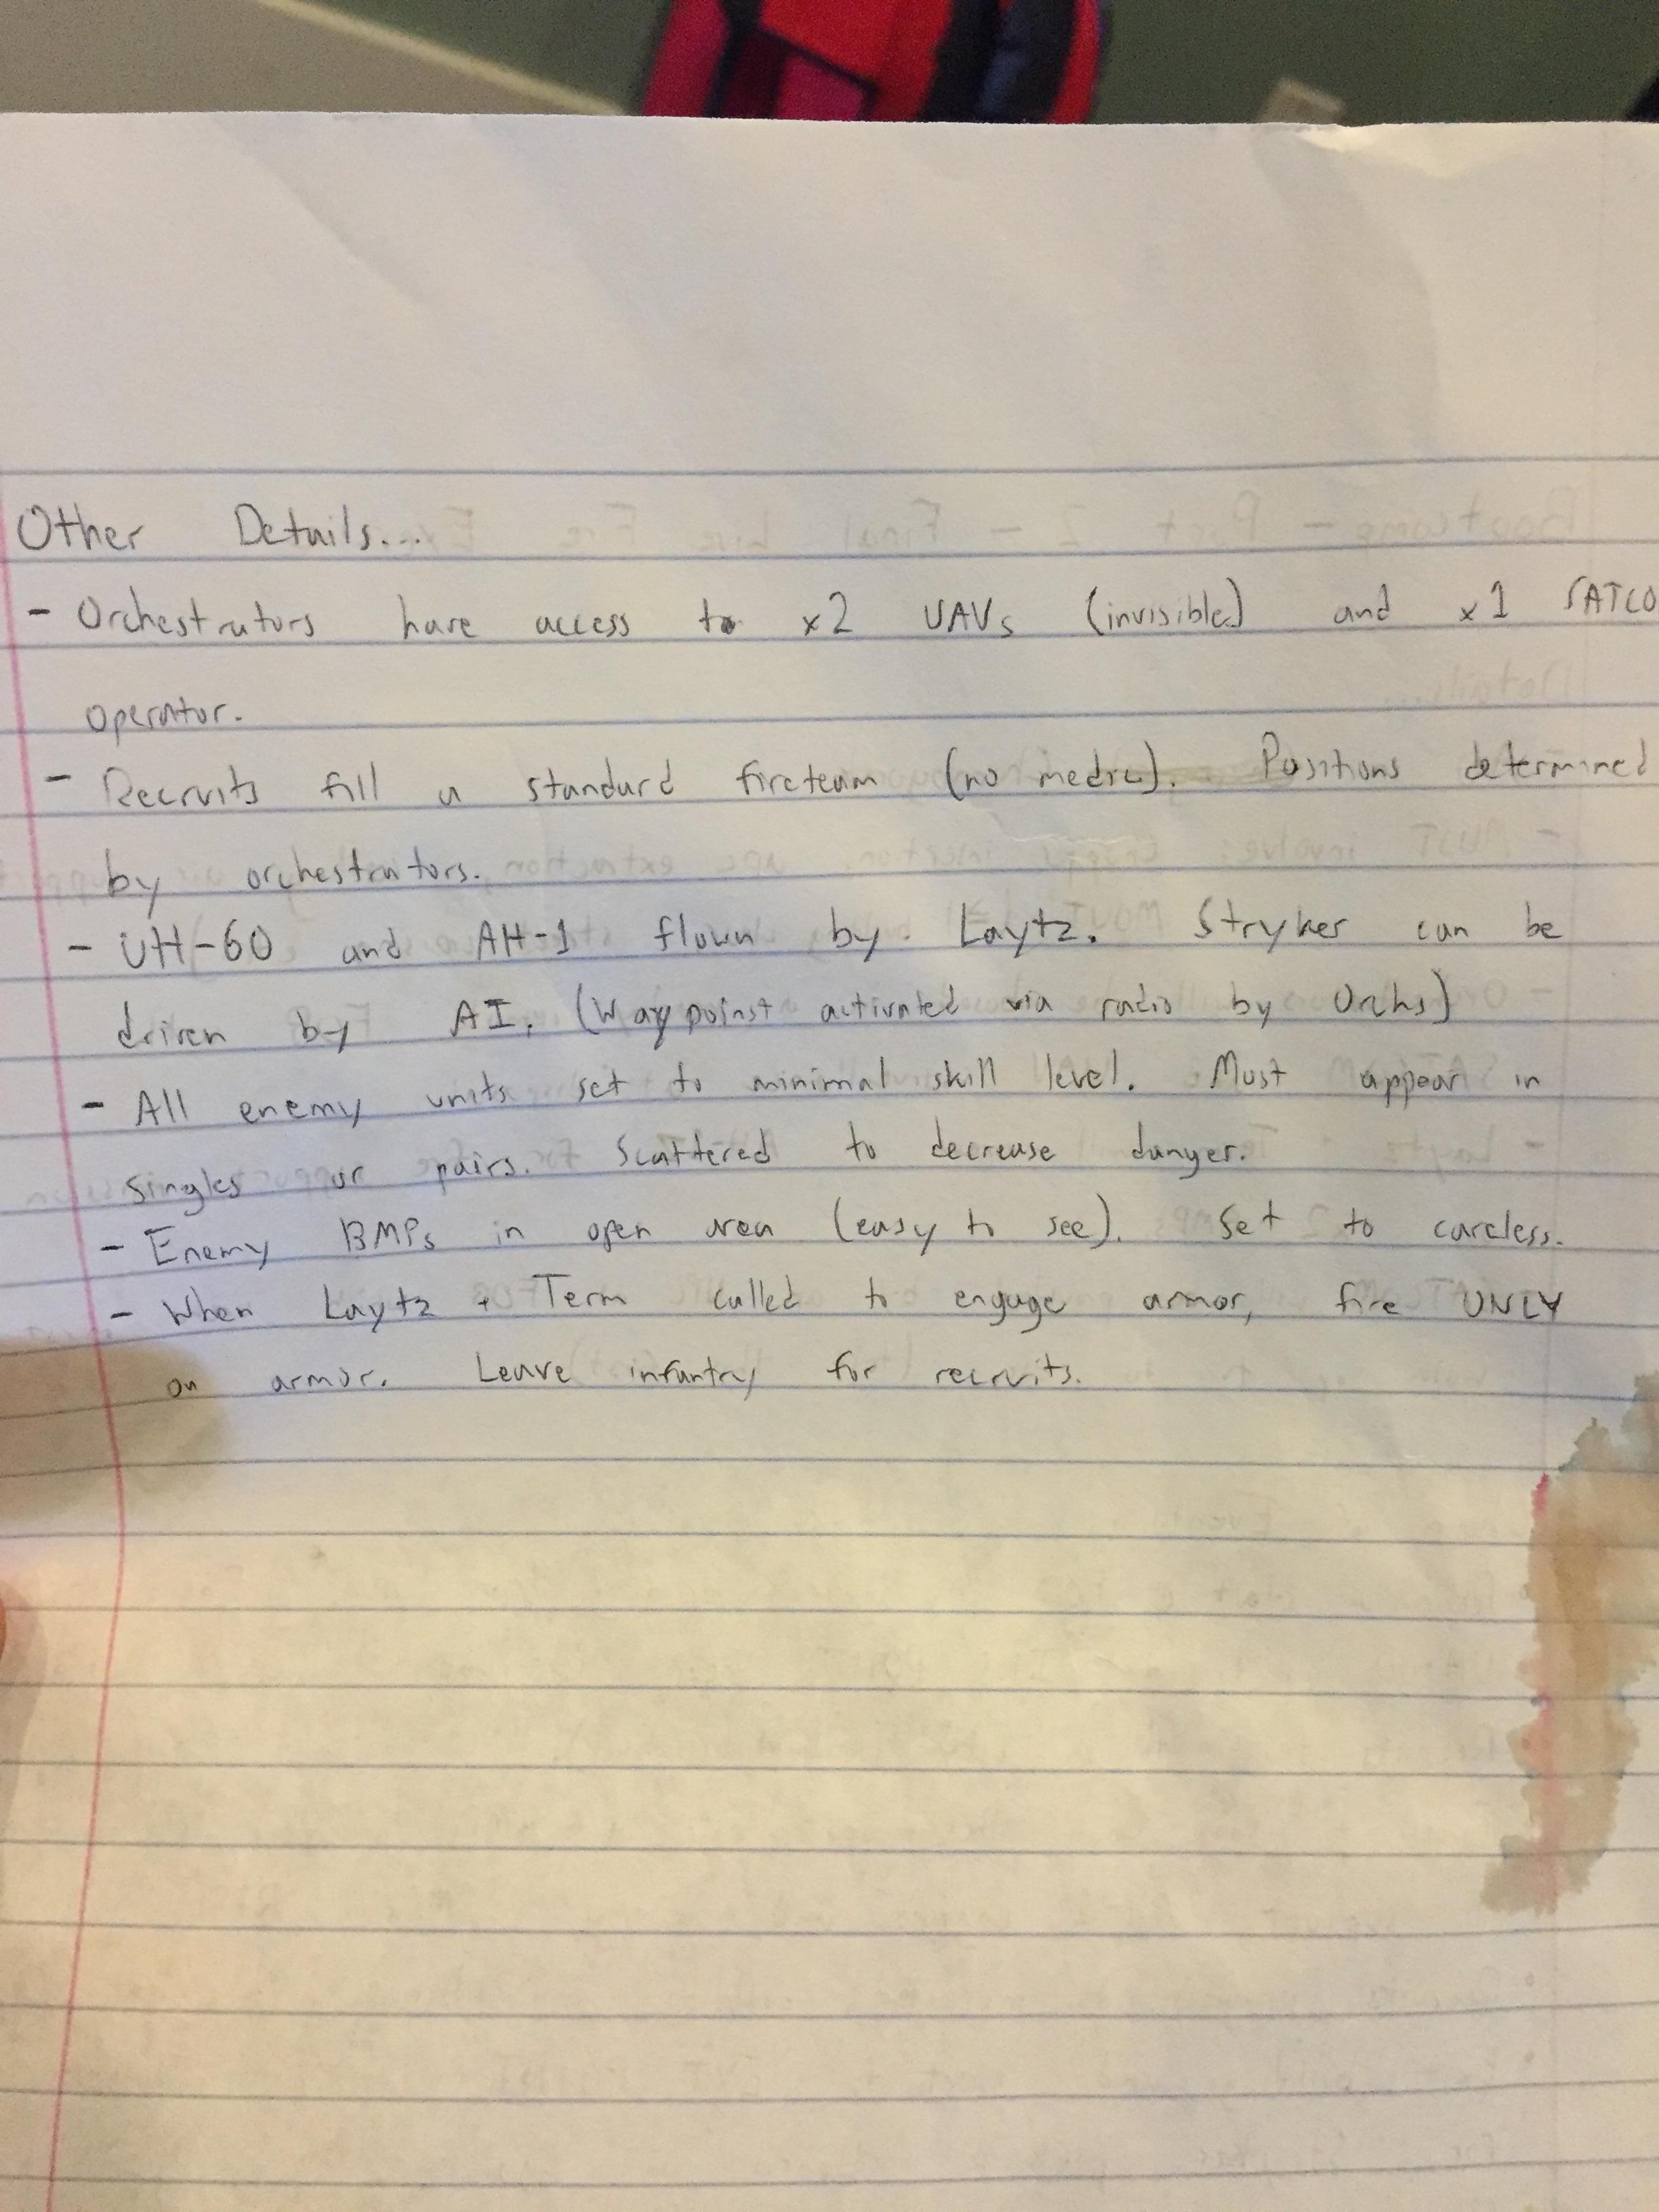 Other Details...
- Orchestrators have access to x2 UAVs (invisible) and x1 SATCO
operator.
- Recruits fill a standard fireteam (no medic). Positions determined
by orchestrators.
- UH-60 and AH-1 flown by Laytz. Stryker can be
driven by AI. (Waypoinst activated via radio by Orchs)
- All enemy units set to minimal skill level. Must appear in
singles or pairs. Scattered to decrease danger.
- Enemy BMPs in open area (easy to see). Set to careless.
- When Laytz + Term called to engage armor, fire ONLY
on armor. Leave infantry for recruits.